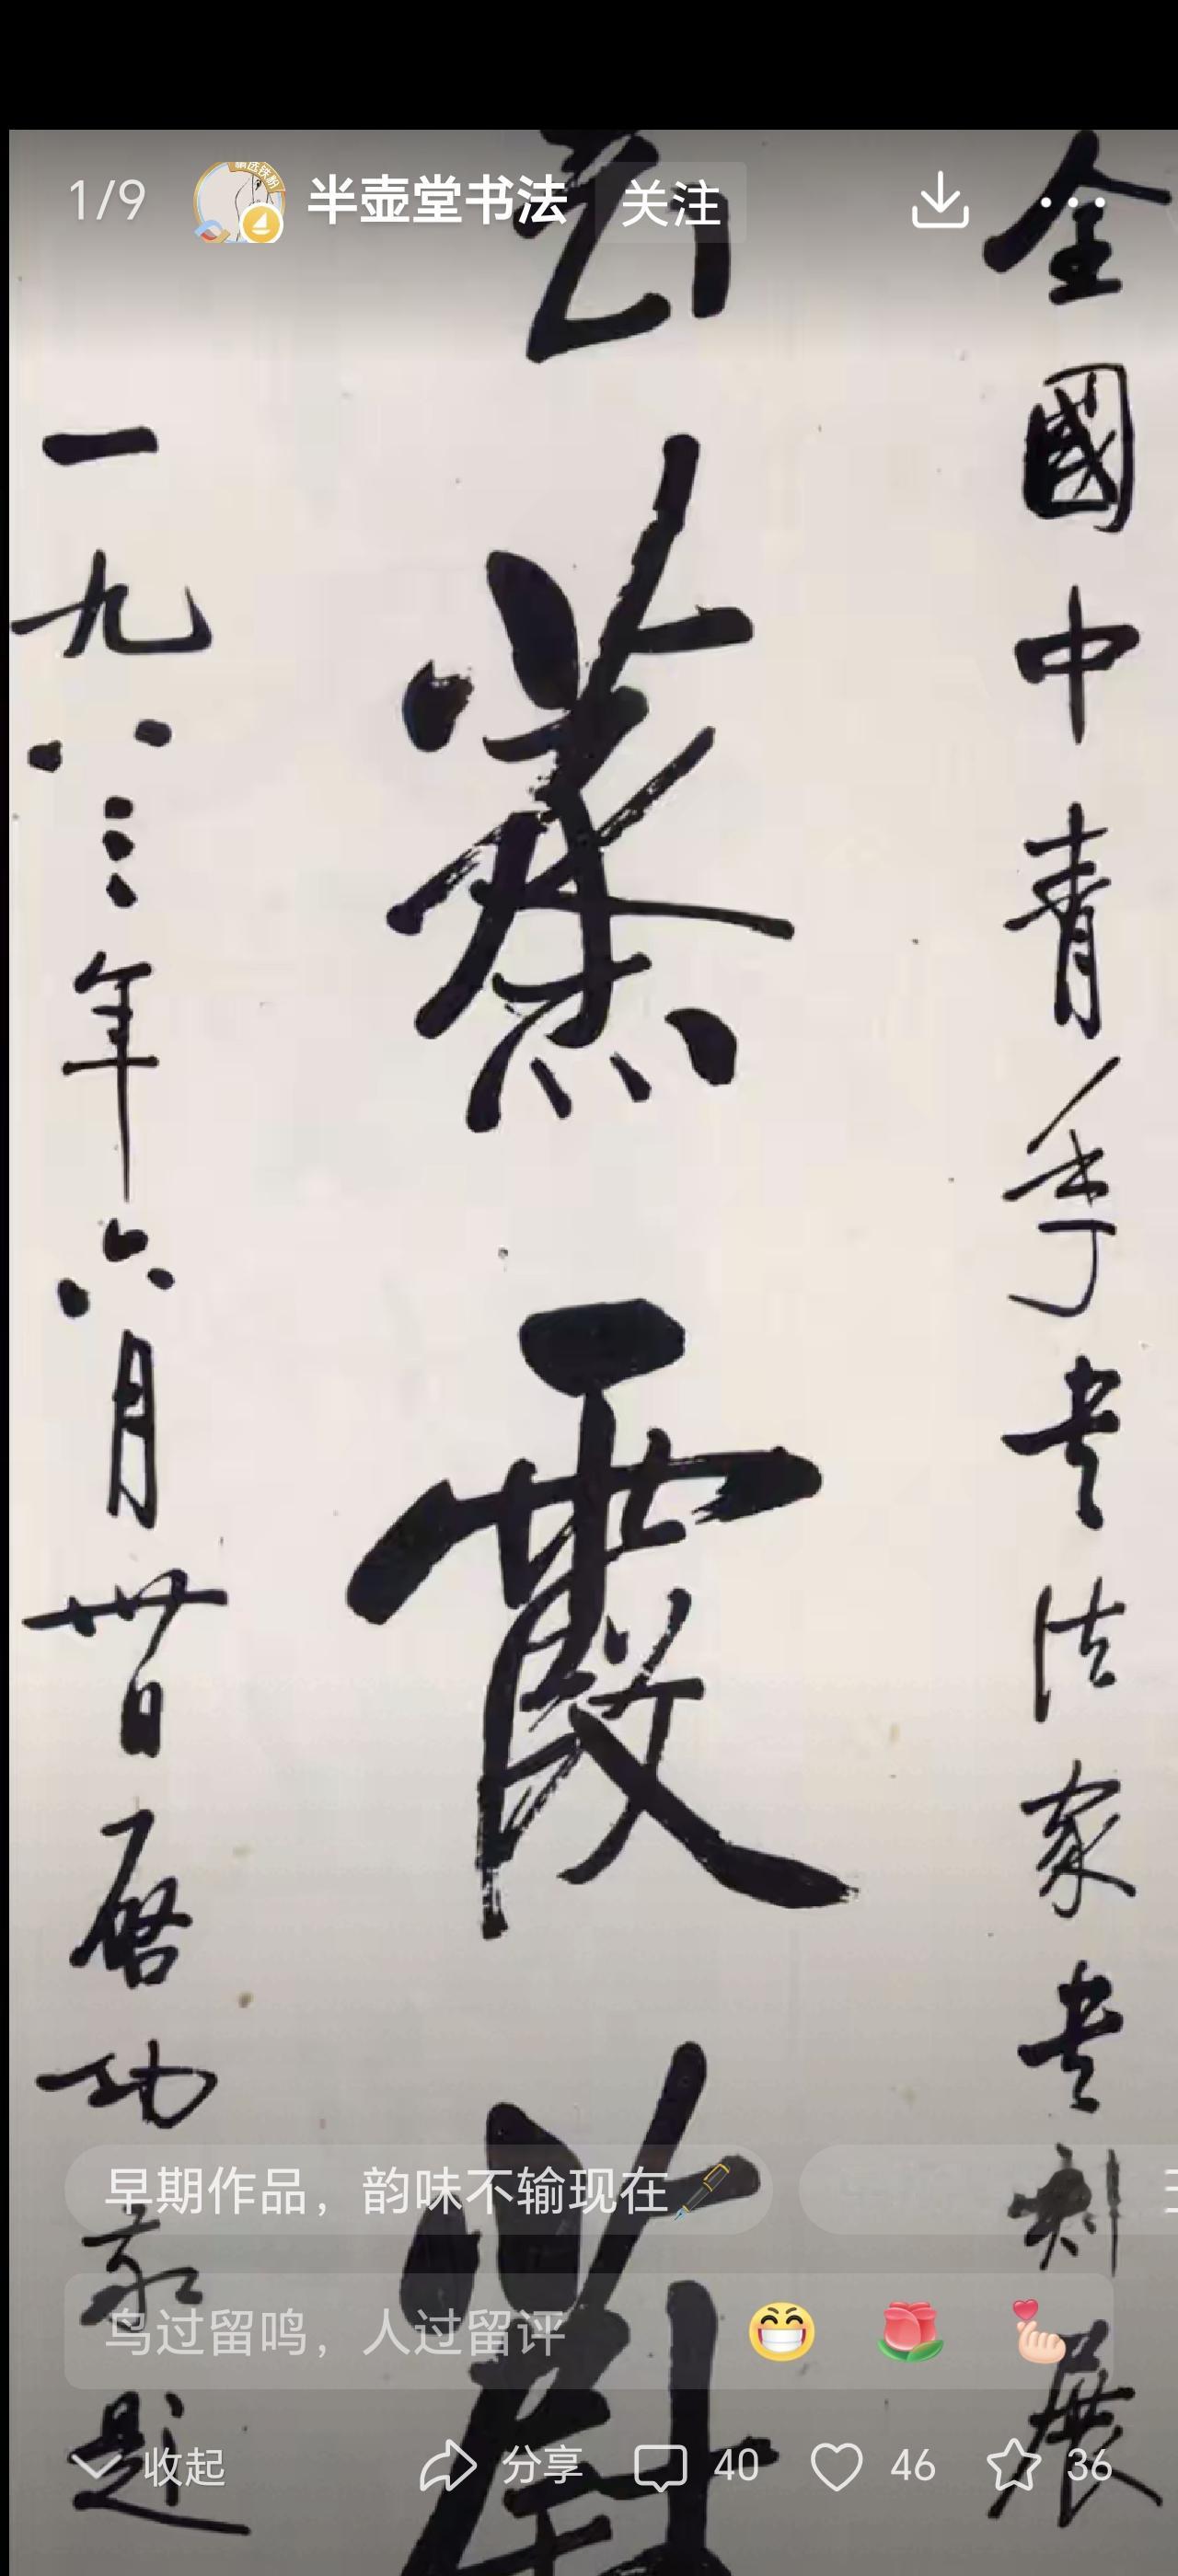 1/9 半壶堂书法 关注
全國中青年書法家書刻展
雲蒸霞蔚
一九八三年六月卅日啓功敬題
早期作品，韵味不输现在
鸟过留鸣，人过留评
收起 分享 40 46 36